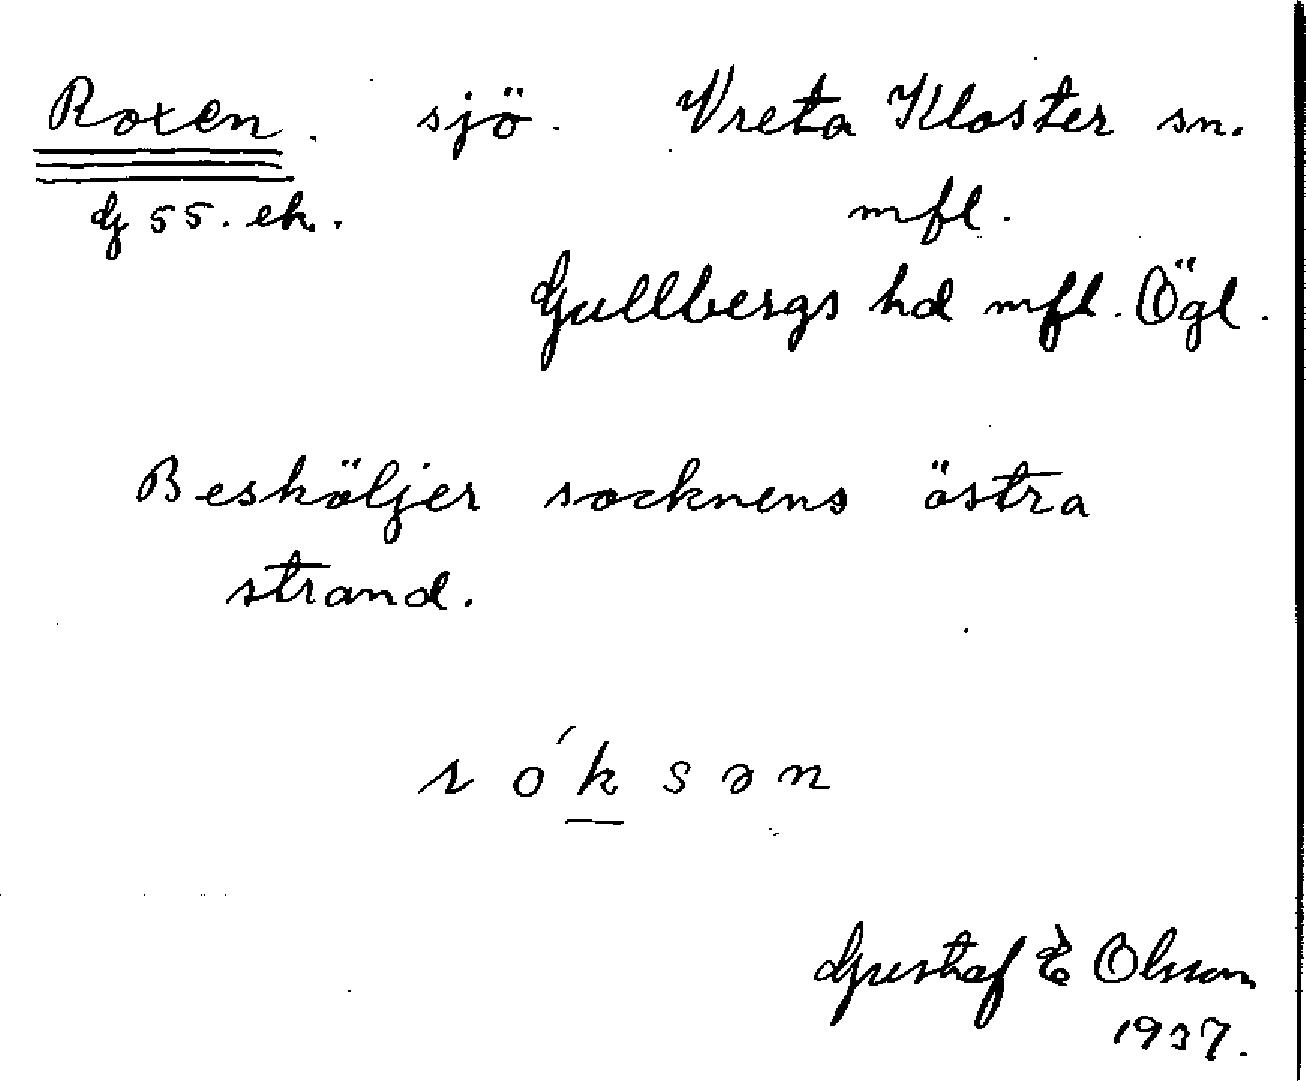 Roxen. sjö. Vreta Kloster sn.
G 55. ek. mfl.
Gullbergs hd mfl. Ögl.
Besköljer socknens östra
strand.
róksən
Gustaf E Olsson
1937.